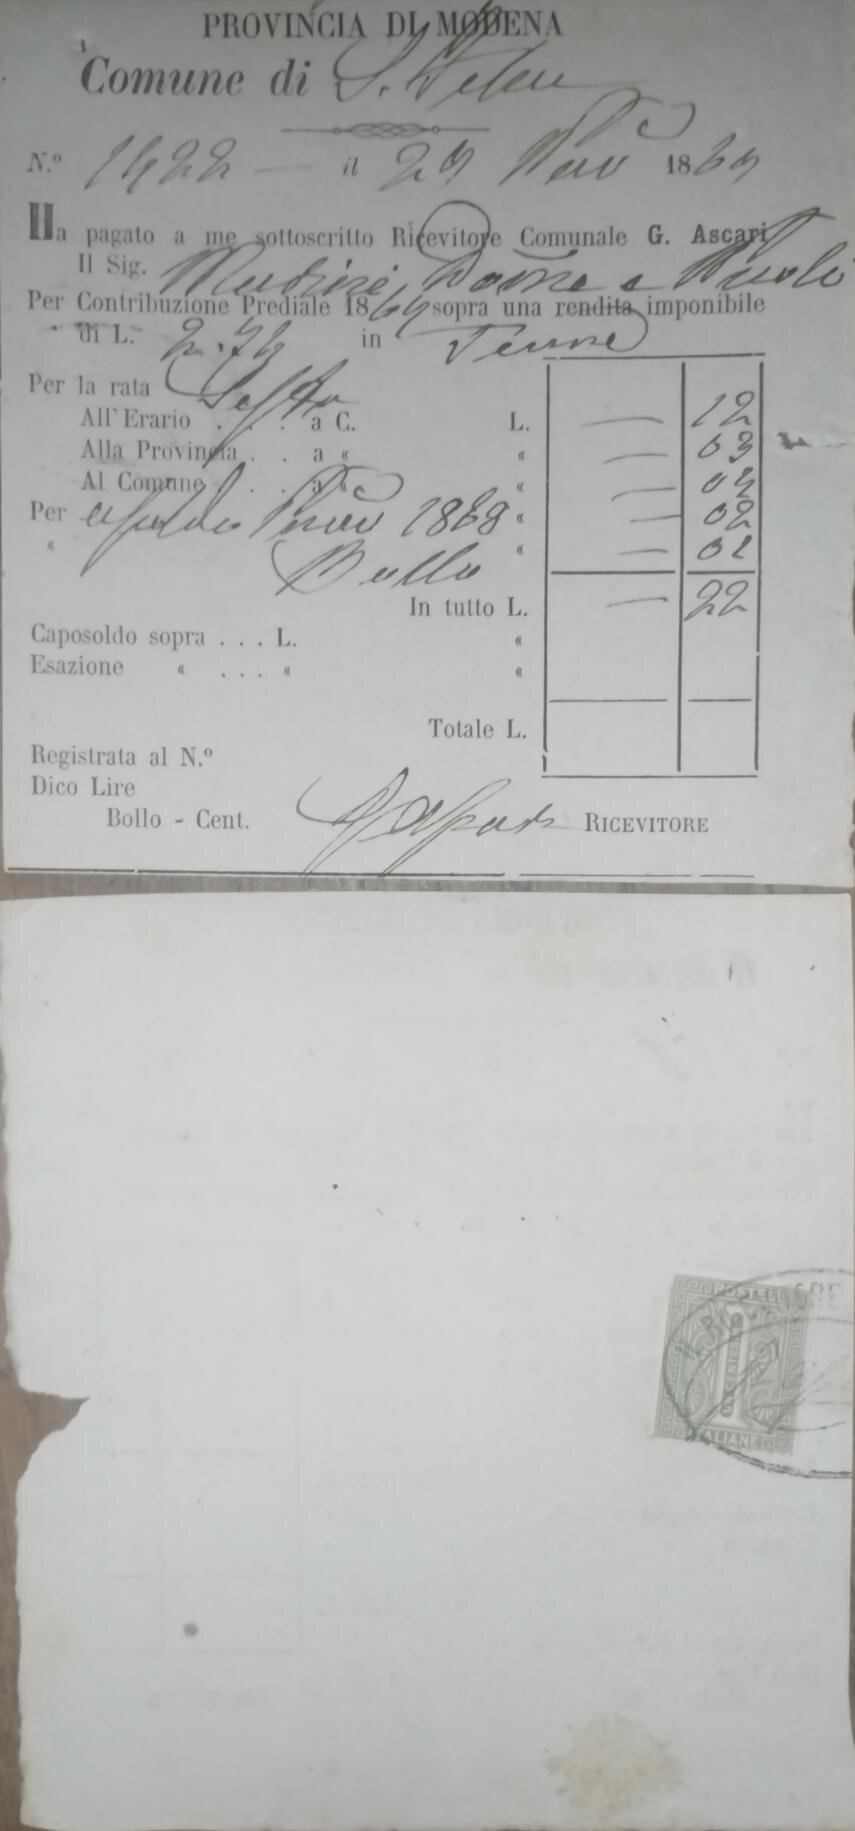 PROVINCIA DI MODENA
Comune di S. Felice
N.º 1422 — il 29 1869
Ha pagato a me sottoscritto Ricevitore Comunale G. Ascari
Il Sig.
Per Contribuzione Prediale 1869 sopra una rendita imponibile
di L. 2.74 in Terre
Per la rata Sesta
All'Erario . . . a C. L. — 12
Alla Provincia . . a « « — 03
Al Comune . . a « « — 04
Per 1869 « — 02
« Bollo « — 01
In tutto L. — 22
Caposoldo sopra . . . L. «
Esazione « . . . « «
Totale L.
Registrata al N.º
Dico Lire
Bollo - Cent. RICEVITORE
POSTE
ITALIANE